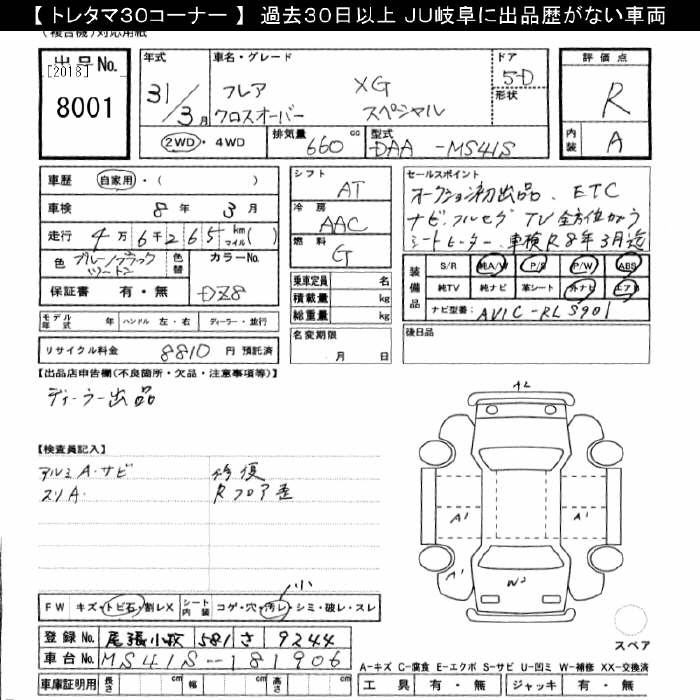 【 トレタマ30コーナー 】 過去30日以上 JU岐阜に出品歴がない車両
(複合機)対応用紙
出品No.
[2018]
8001
年式
31/3月
車名・グレード
フレア XG
クロスオーバー スペシャル
ドア
5-D
形状
評価点
R
内装
A
2WD・4WD
排気量
660 cc
型式
DAA-MS41S
車歴 自家用・( )
車検 8年 3月
走行 4万6千265 km マイル( )
色 ブルー/ブラック ツートン
色替
カラーNo.
DZ8
保証書 有・無
シフト
AT
冷房
AAC
燃料
G
乗車定員 名
積載量 kg
総重量 kg
名変期限
月 日
セールスポイント
オークション初出品. ETC
ナビ.フルセグTV 全方位カメラ
シートヒーター. 車検R8年3月迄
装備品
S/R 純A/W P/S P/W ABS
純TV 純ナビ 革シート 外ナビ エアB
ナビ型番: AVIC-RLS901
後日品
モデル年式 年 ハンドル 左・右 ディーラー・並行
リサイクル料金 8810 円 預託済
【出品店申告欄(不良箇所・欠品・注意事項等)】
ディーラー出品
【検査員記入】
アルミA.サビ 修復
スリA. Rフロア歪
AL
A1
A1
A1
W2
小
FW キズ・トビ石・割レX シート内装 コゲ・穴・汚レ・シミ・破レ・スレ
登録No. 尾張小牧 581 さ 9244
車台No. MS41S-181906
車庫証明用 長さ cm 幅 cm 高さ cm
スペア
A-キズ C-腐食 E-エクボ S-サビ U-凹ミ W-補修 XX-交換済
工具 有・無 ジャッキ 有・無